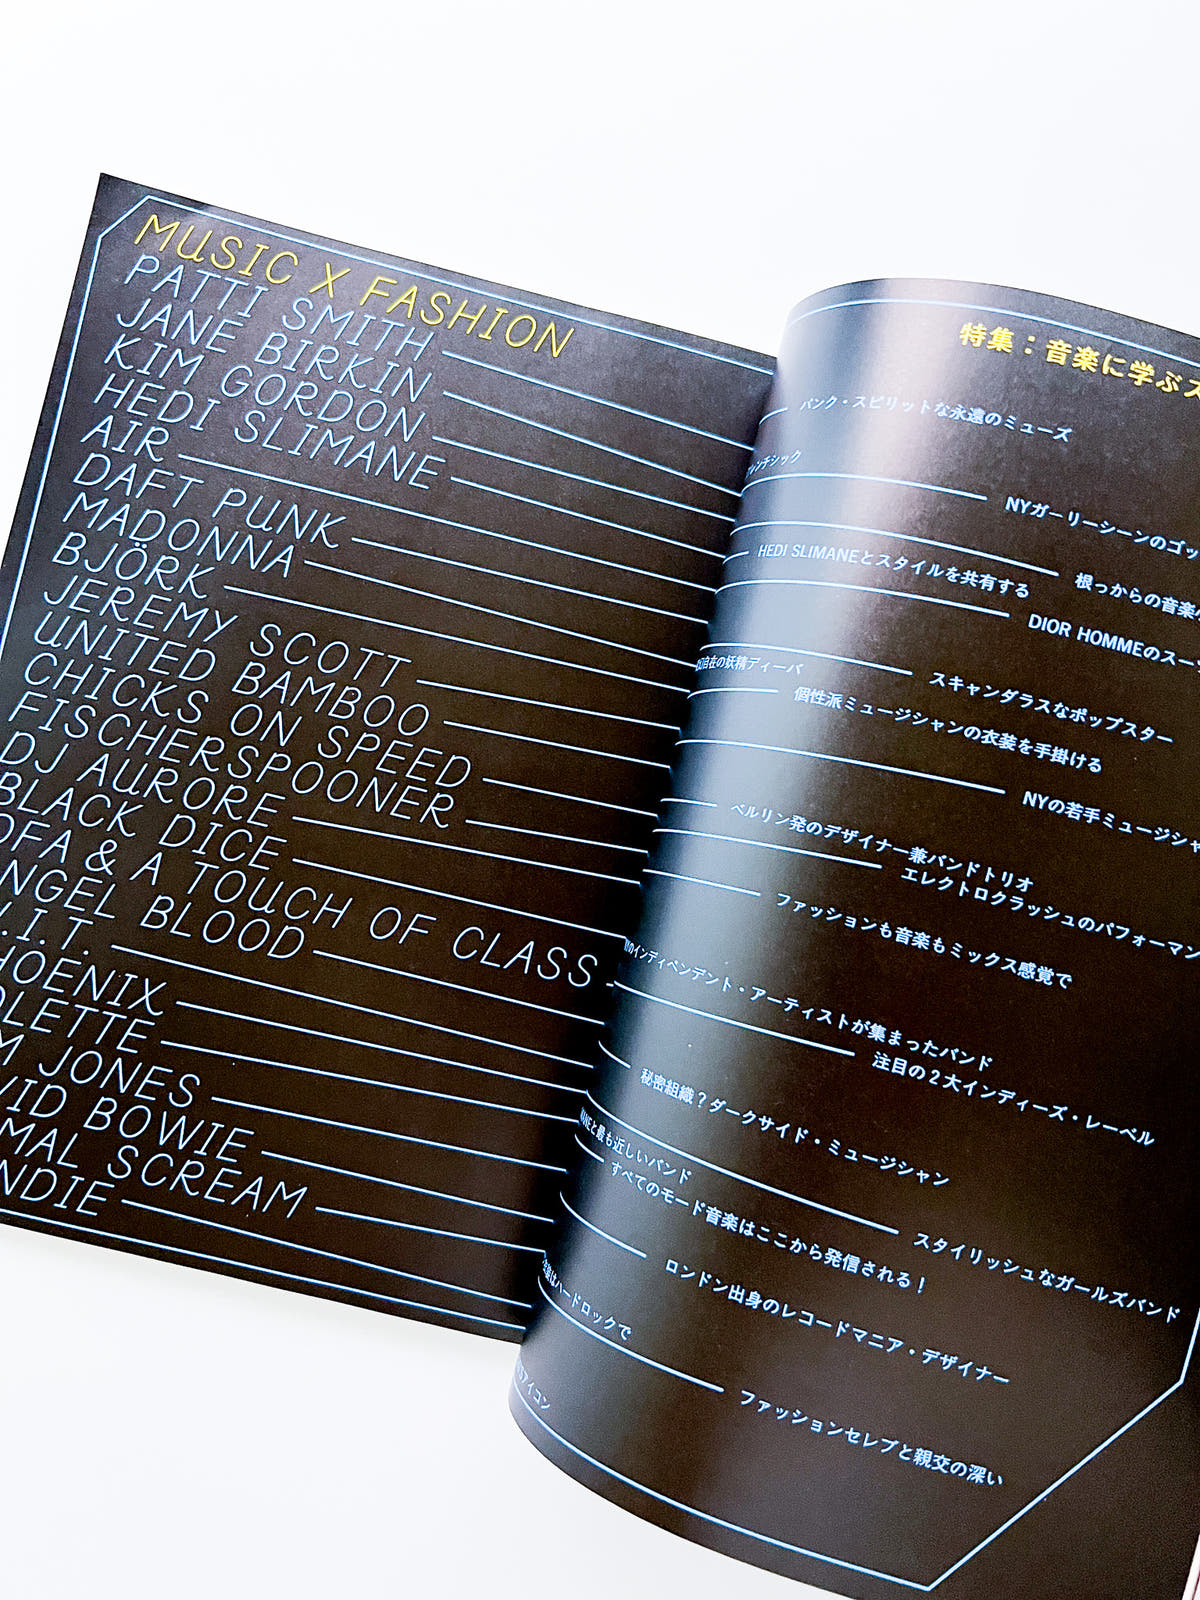 MUSIC X FASHION
PATTI SMITH
JANE BIRKIN
KIM GORDON
HEDI SLIMANE
AIR
DAFT PUNK
MADONNA
BJÖRK
JEREMY SCOTT
UNITED BAMBOO
CHICKS ON SPEED
FISCHERSPOONER
DJ AURORE
BLACK DICE
OFA & A TOUCH OF CLASS
NGEL BLOOD
.I.T.
HOENIX
OLETTE
M JONES
VID BOWIE
MAL SCREAM
NDIE
特集：音楽に学ぶス
パンク・スピリットな永遠のミューズ
レンチシック
NYガーリーシーンのゴッ
根っからの音楽
HEDI SLIMANEとスタイルを共有する
DIOR HOMMEのスー
スキャンダラスなポップスター
自在の妖精ディーバ
個性派ミュージシャンの衣装を手掛ける
NYの若手ミュージシャ
ベルリン発のデザイナー兼バンドトリオ
エレクトロクラッシュのパフォーマン
ファッションも音楽もミックス感覚で
のインディペンデント・アーティストが集まったバンド
注目の2大インディーズ・レーベル
秘密組織？ダークサイド・ミュージシャン
スタイリッシュなガールズバンド
と最も近しいバンド
すべてのモード音楽はここから発信される！
ロンドン出身のレコードマニア・デザイナー
はハードロックで
ファッションセレブと親交の深い
アイコン